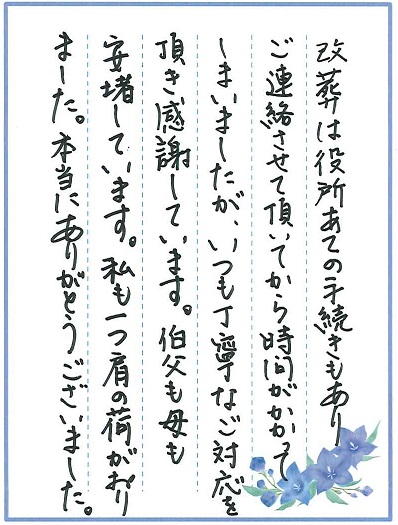 改葬は役所あての手続きもあり
ご連絡させて頂いてから時間がかかって
しまいましたが、いつも丁寧なご対応を
頂き感謝しています。伯父も母も
安堵しています。私も一つ肩の荷がおり
ました。本当にありがとうございました。